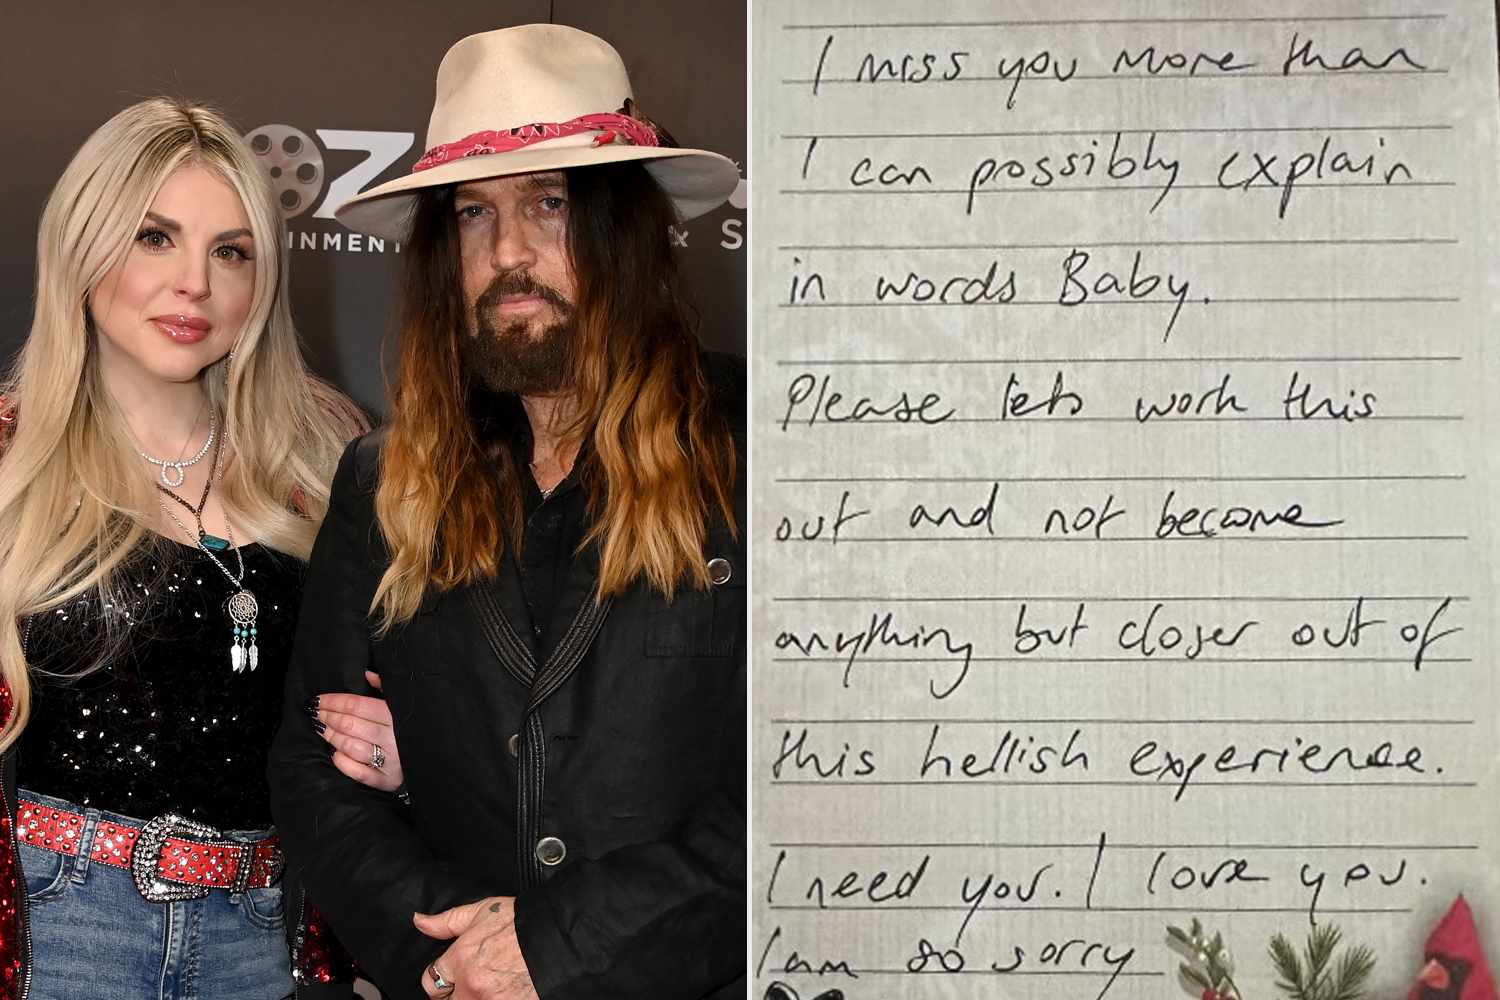 OZ
INMENT
&
S
I miss you more than
I can possibly explain
in words Baby.
Please lets work this
out and not become
anything but closer out of
this hellish experience.
I need you. I love you.
I am so sorry